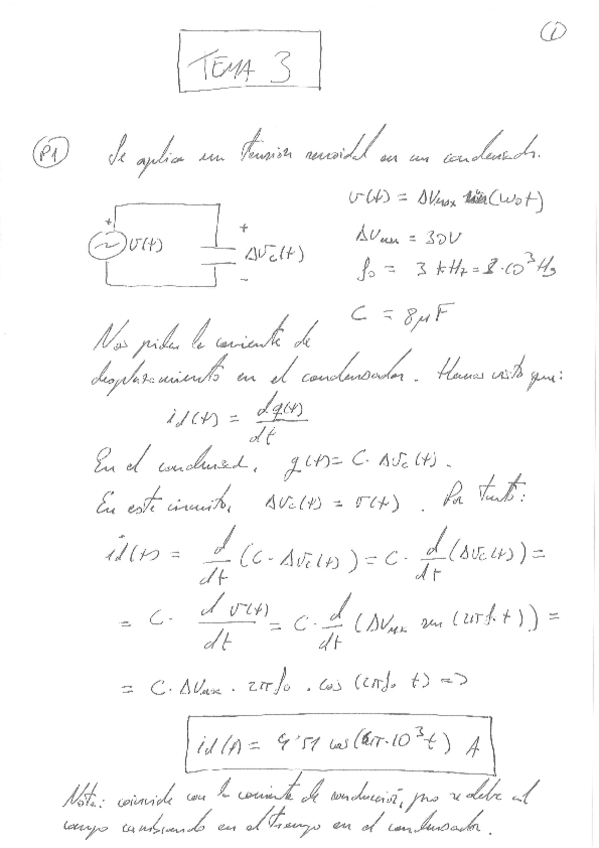 1
TEMA 3
P1 Se aplica una tensión senoidal en un condensador.
v(t) = ΔVmax sen(ω0t)
+ v(t) + ΔVc(t) -
ΔVmax = 30V
f0 = 3 kHz = 3·10³ Hz
C = 8μF
Nos piden la corriente de
desplazamiento en el condensador. Hemos visto que:
id(t) = dq(t)/dt
En el condensad., q(t) = C·ΔVc(t).
En este circuito, ΔVc(t) = v(t). Por tanto:
id(t) = d/dt (C·ΔVc(t)) = C· d/dt (ΔVc(t)) =
= C· d v(t)/dt = C· d/dt (ΔVmax sen (2πf0t)) =
= C·ΔVmax·2πf0·cos (2πf0 t) =>
id(t) = 4'51 cos(6π·10³t) A
Nota: coincide con la corriente de conducción, pero se debe al
campo cambiando en el tiempo en el condensador.